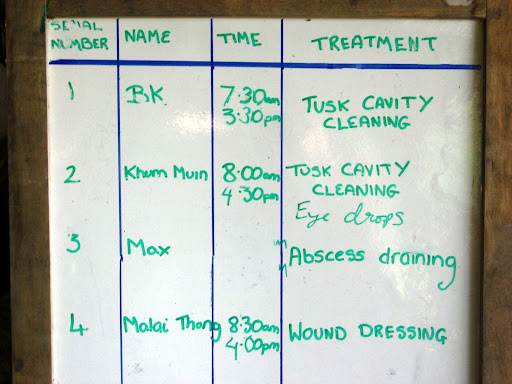 SERIAL NUMBER NAME TIME TREATMENT
1 BK 7:30am TUSK CAVITY
3:30pm CLEANING
2 Khum Muin 8:00am TUSK CAVITY
4:30pm CLEANING
Eye drops
3 Max Abscess draining
4 Malai Thong 8:30am WOUND DRESSING
4:00pm